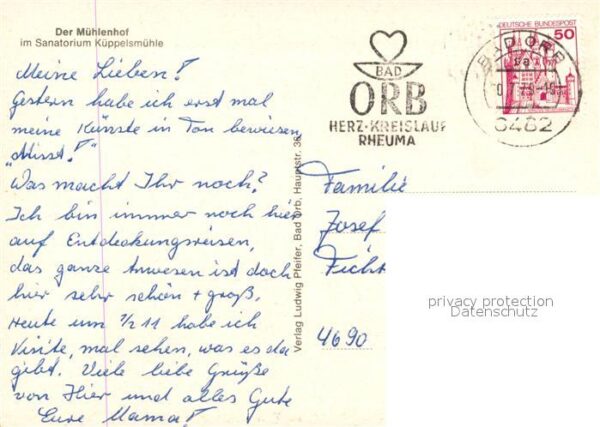 Der Mühlenhof
im Sanatorium Küppelsmühle
Meine Lieben!
Gestern habe ich erst mal
meine Künste in Ton bewiesen
"Misst!"
Was macht Ihr noch?
Ich bin immer noch hier
auf Entdeckungsreisen,
das ganze Anwesen ist doch
hier sehr schön + groß.
Heute um 1/2 11 habe ich
Visite, mal sehen, was es da
gibt. Viele liebe Grüße
von Hier und alles Gute
Eure Mama!
Verlag Ludwig Pfeifer, Bad Orb, Hauptstr. 36
BAD
ORB
HERZ-KREISLAUF
RHEUMA
DEUTSCHE BUNDESPOST
50
BAD ORB
6482
Familie
Josef
Ficht
4690
privacy protection
Datenschutz